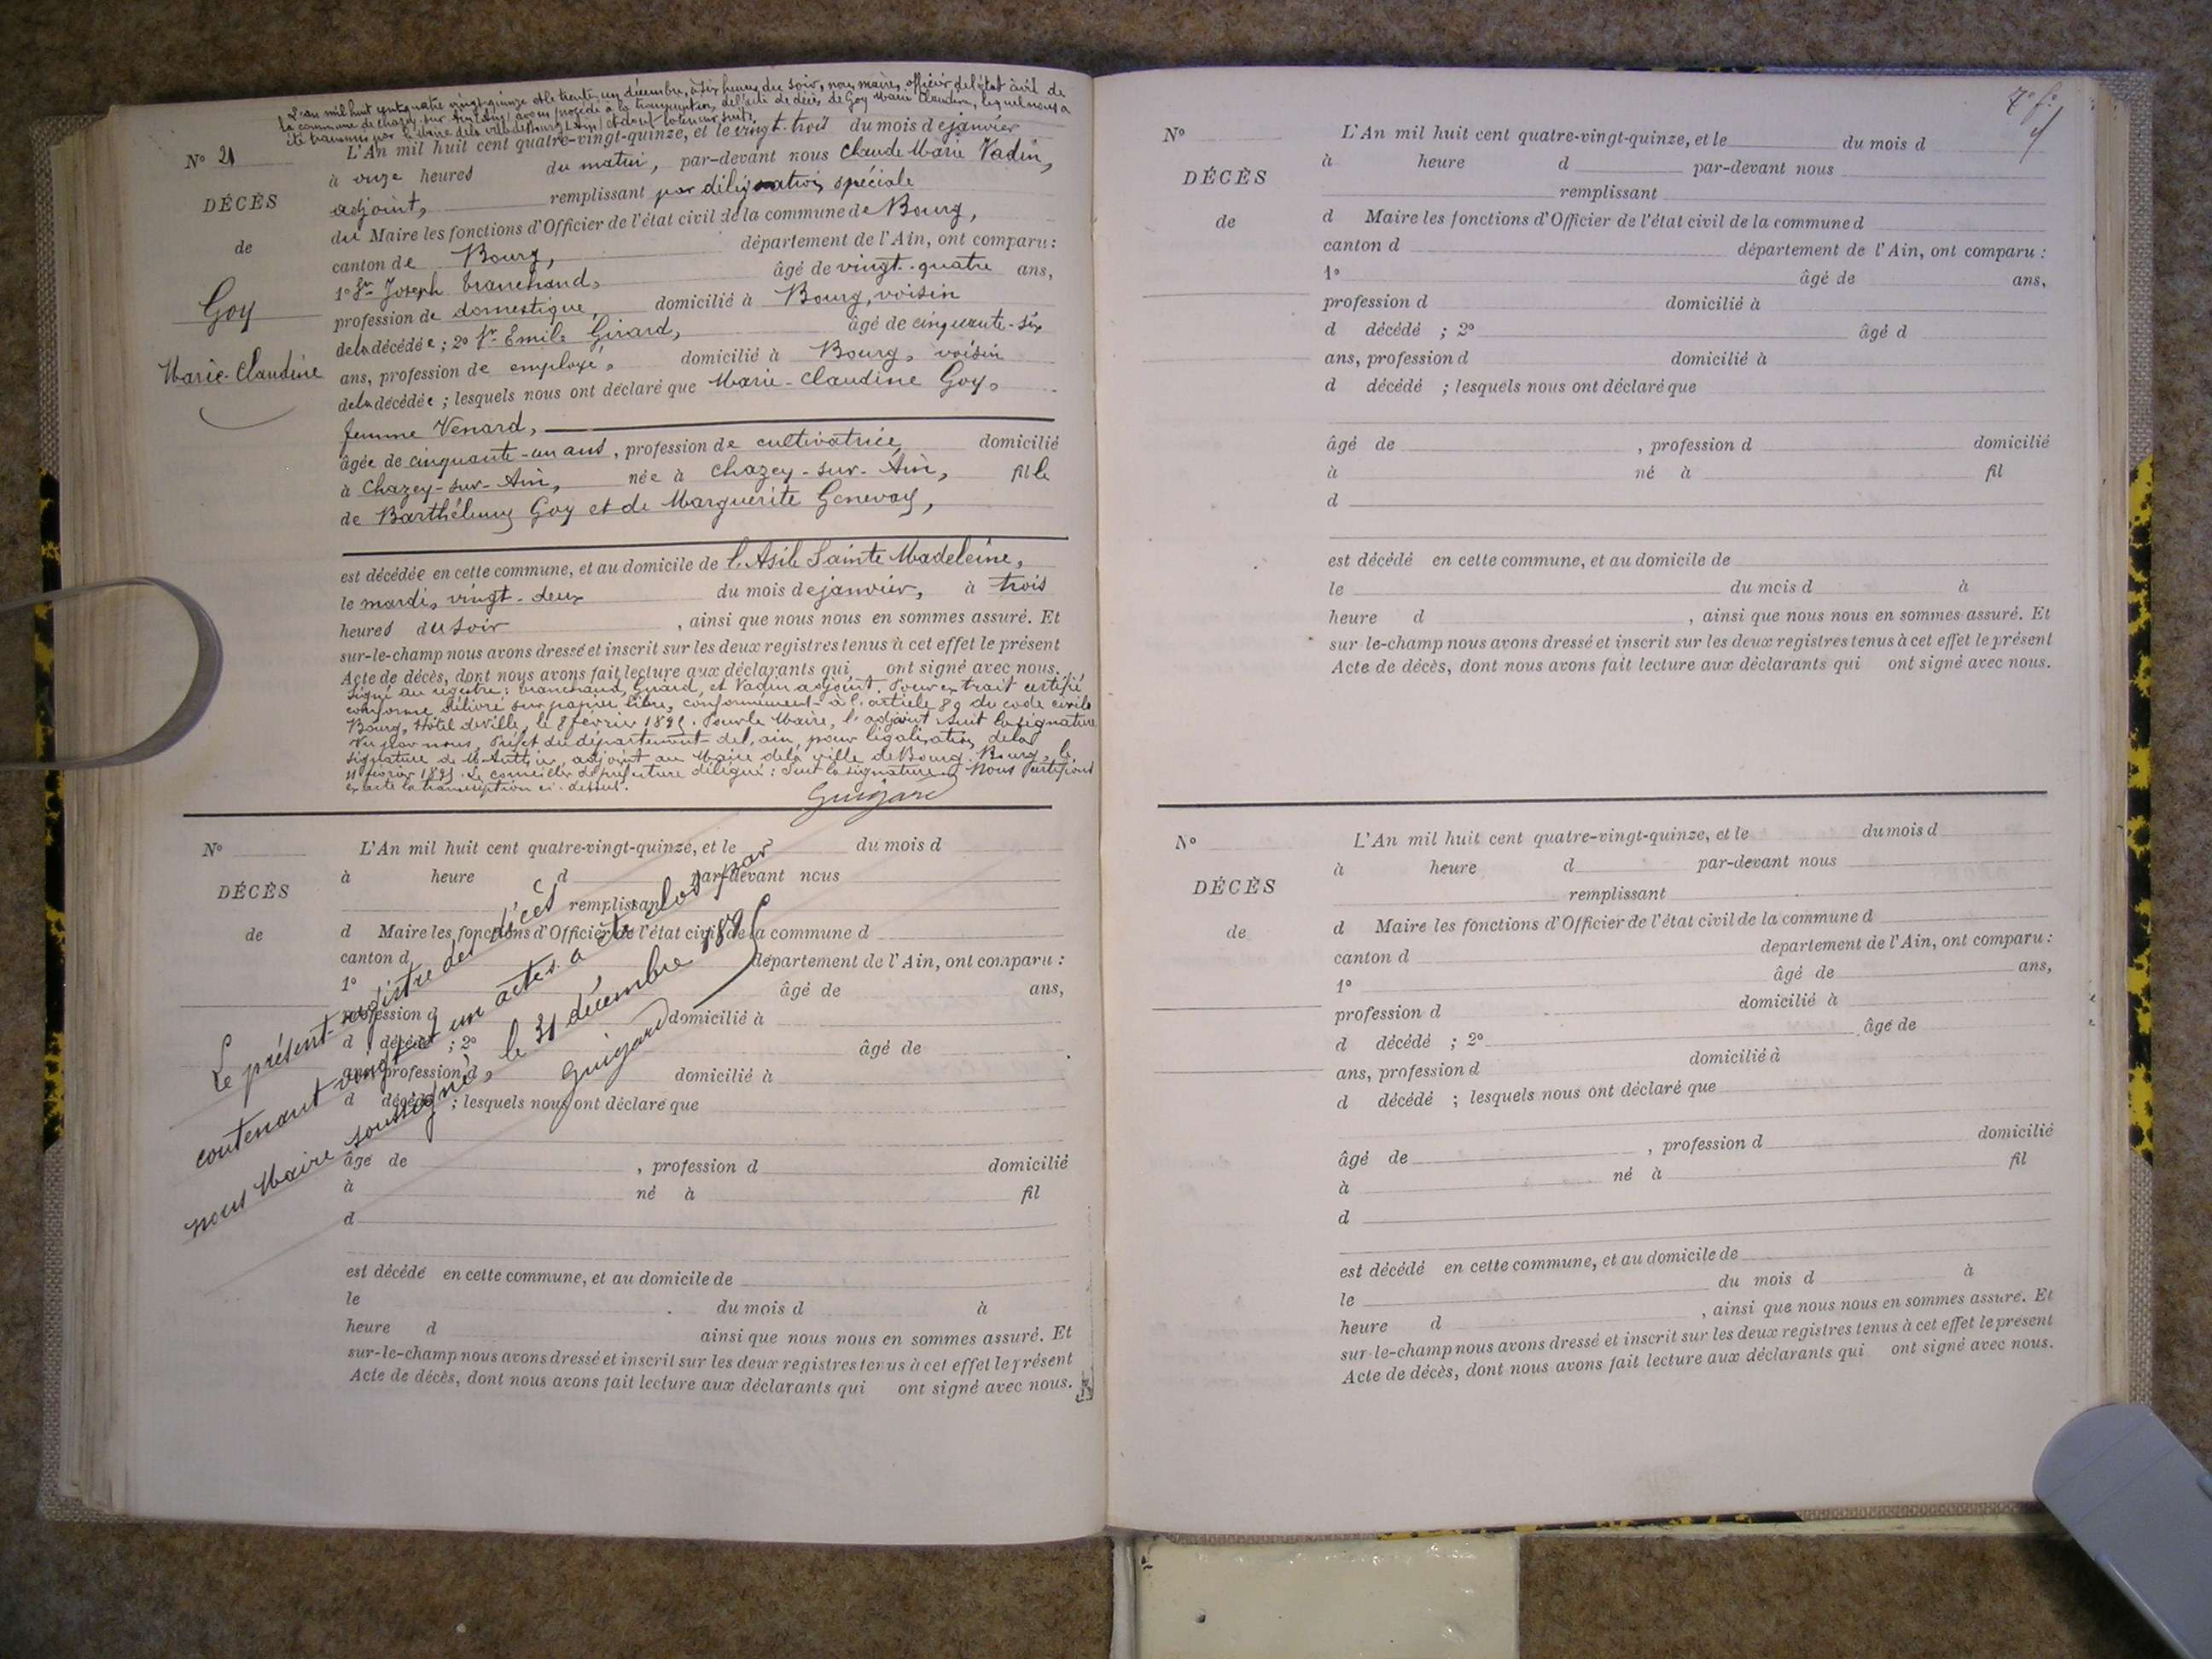 L'an mil huit cent quatre vingt quinze et le trente un décembre, à six heures du soir, nous maire, officier de l'état civil de
la commune de Chazey-sur-Ain (Ain) avons procédé à la transcription de l'acte de décès de Goy Marie Claudine, lequel nous a
été transmis par le Maire de la ville de Bourg (Ain) et dont la teneur suit:
N° 21
L'An mil huit cent quatre-vingt-quinze, et le vingt-trois du mois de janvier
à onze heures du matin, par-devant nous Claude Marie Vadin,
DÉCÈS
adjoint, remplissant par délégation spéciale
du Maire les fonctions d'Officier de l'état civil de la commune de Bourg,
de
canton de Bourg, département de l'Ain, ont comparu :
1° Sr Joseph branchand, âgé de vingt-quatre ans,
Goy
profession de domestique, domicilié à Bourg, voisin
de la décédée ; 2° Sr Emile Girard, âgé de cinquante-six
Marie-Claudine
ans, profession de employé, domicilié à Bourg, voisin
de la décédée ; lesquels nous ont déclaré que Marie-Claudine Goy,
femme Venard,
âgée de cinquante-un ans, profession de cultivatrice domicilié
à Chazey-sur-Ain, née à Chazey-sur-Ain, fille
de Barthélemy Goy et de Marguerite Genevay,
est décédée en cette commune, et au domicile de l'Asile Sainte Madeleine,
le mardi, vingt-deux du mois de janvier, à trois
heures du soir, ainsi que nous nous en sommes assuré. Et
sur-le-champ nous avons dressé et inscrit sur les deux registres tenus à cet effet le présent
Acte de décès, dont nous avons fait lecture aux déclarants qui ont signé avec nous.
Signé au registre : branchand, Girard, et Vadin adjoint. Pour extrait certifié
conforme délivré sur papier libre, conformément à l'article 80 du code civil
Bourg, Hôtel de Ville, le 8 février 1895. Pour le Maire, l'adjoint suit la signature
Vu par nous, Préfet du département de l'ain, pour légalisation de la
signature de M. adjoint au Maire de la ville de Bourg. Bourg, le
11 février 1895. Le conseiller de préfecture délégué : Suit la signature. Nous certifions
exacte la transcription ci-dessus.
Guigard
N° L'An mil huit cent quatre-vingt-quinze, et le du mois d
à heure d par-devant nous
DÉCÈS
remplissant
d Maire les fonctions d'Officier de l'état civil de la commune d
de
canton d département de l'Ain, ont comparu :
1° âgé de ans,
profession d domicilié à
d décédé ; 2° âgé de
ans, profession d domicilié à
d décédé ; lesquels nous ont déclaré que
âgé de , profession d domicilié
à né à fil
d
est décédé en cette commune, et au domicile de
le du mois d à
heure d ainsi que nous nous en sommes assuré. Et
sur-le-champ nous avons dressé et inscrit sur les deux registres tenus à cet effet le présent
Acte de décès, dont nous avons fait lecture aux déclarants qui ont signé avec nous.
Le présent registre des décès
contenant vingt et un actes a été clos par
nous Maire soussigné, le 31 décembre 1895
Guigard
7e fo
N° L'An mil huit cent quatre-vingt-quinze, et le du mois d
à heure d par-devant nous
DÉCÈS
remplissant
de
d Maire les fonctions d'Officier de l'état civil de la commune d
canton d département de l'Ain, ont comparu :
1° âgé de ans,
profession d domicilié à
d décédé ; 2° âgé d
ans, profession d domicilié à
d décédé ; lesquels nous ont déclaré que
âgé de , profession d domicilié
à né à fil
d
est décédé en cette commune, et au domicile de
le du mois d à
heure d , ainsi que nous nous en sommes assuré. Et
sur-le-champ nous avons dressé et inscrit sur les deux registres tenus à cet effet le présent
Acte de décès, dont nous avons fait lecture aux déclarants qui ont signé avec nous.
N° L'An mil huit cent quatre-vingt-quinze, et le du mois d
à heure d par-devant nous
DÉCÈS
remplissant
de
d Maire les fonctions d'Officier de l'état civil de la commune d
canton d departement de l'Ain, ont comparu :
1° âgé de ans,
profession d domicilié à
d décédé ; 2° âgé de
ans, profession d domicilié à
d décédé ; lesquels nous ont déclaré que
âgé de , profession d domicilié
à né à fil
d
est décédé en cette commune, et au domicile de
le du mois d à
heure d , ainsi que nous nous en sommes assuré. Et
sur-le-champ nous avons dressé et inscrit sur les deux registres tenus à cet effet le présent
Acte de décès, dont nous avons fait lecture aux déclarants qui ont signé avec nous.